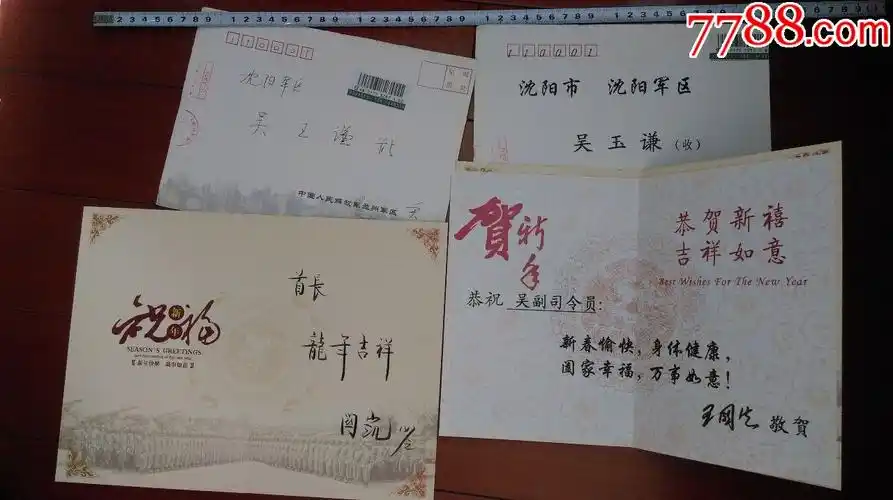 7788.com
110001
沈阳军区
吴玉谦
中国人民解放军兰州军区
110001
沈阳市 沈阳军区
吴玉谦（收）
祝福
新年
SEASON'S GREETINGS
首长
龍年吉祥
贺新年
恭贺新禧
吉祥如意
Best Wishes For The New Year
恭祝 吴副司令员:
新春愉快，身体健康，
阖家幸福，万事如意！
敬賀